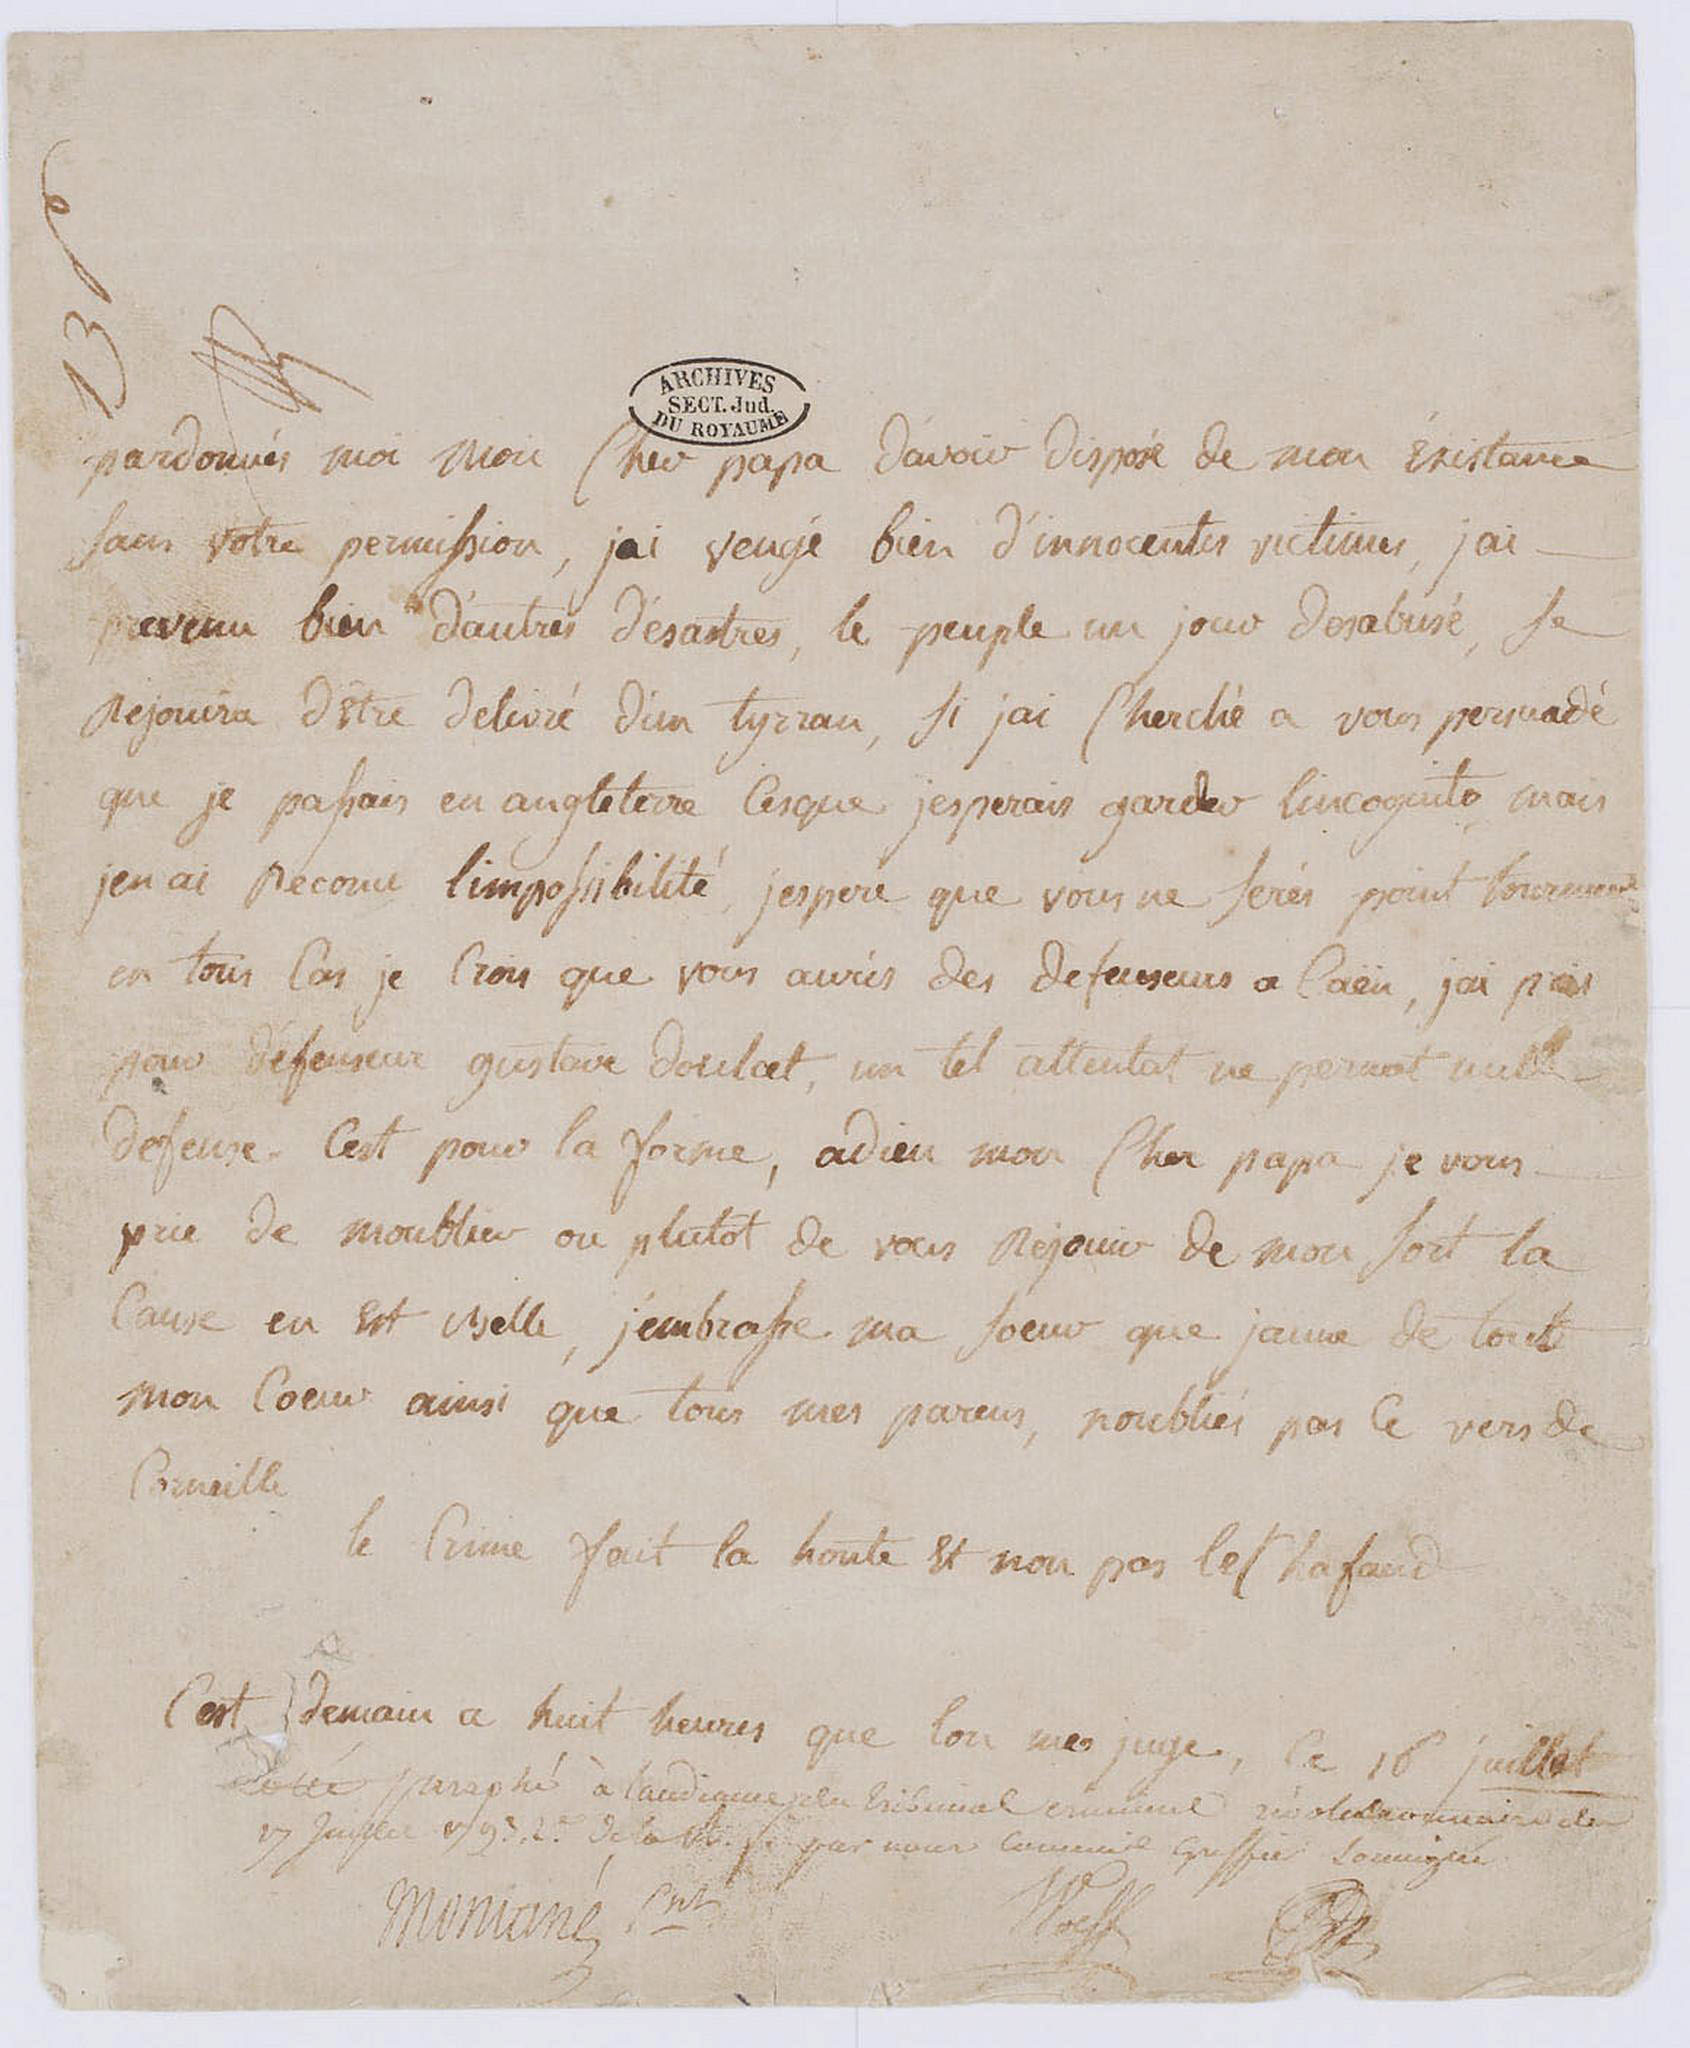 13
ARCHIVES
SECT. Jud.
DU ROYAUME
pardonnés moi mon Cher papa d'avoir disposé de mon éxistance
sans votre permission, jai vengé bien d'innocentes victimes, jai
prevenu bien d'autres désastres, le peuple un jour desabusé, se
Rejouira dêtre delivré dun tyrran, Si jai Cherché a vous persuadé
que je passais en angleterre Cesque jesperais garder lincognito mais
jen ai Reconu limpossibilité, jespere que vous ne serés point tourmenté
en tous Cas je Crois que vous aurés des defenseurs a Caën, jai pris
pour défenseur gustave doulcet, un tel attentat ne permet nulle
defense. Cest pour la forme, adieu mon Cher papa je vous
prie de moublier ou plutot de vous Rejouir de mon sort la
Cause en est Belle, j'embrasse ma soeur que jaime de tout
mon Coeur ainsi que tous mes parens, noubliés pas Ce vers de
Corneille
le Crime fait la honte et non pas lechafaud
Cest demain a huit heures que lon me juge, Ce 16 juillet
paraphé à laudiance du tribunal criminel révolutionnaire du
17 Juillet 1793. 2e de la par nous Commis Greffier Soussigné
Montané Pnt
Wolff